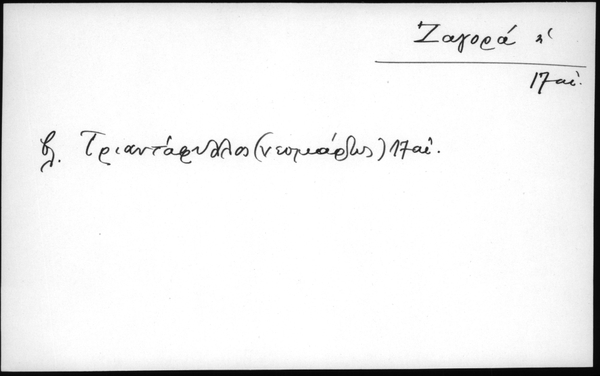 Ζαγορά ἡ
17 αἰ.
βλ. Τριαντάφυλλος (νεομάρτυς) 17 αἰ.